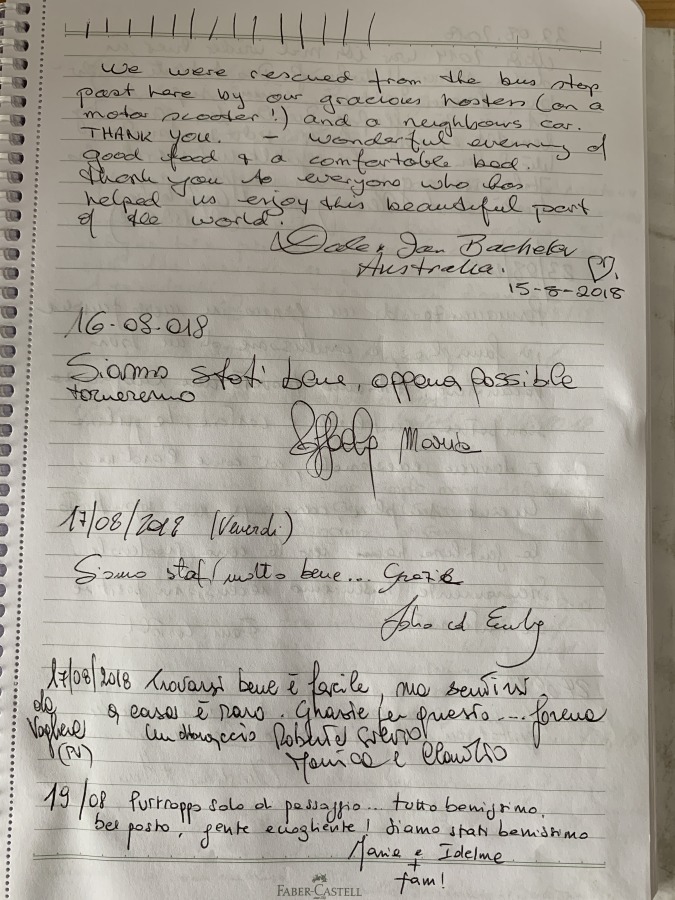 We were rescued from the bus stop
past here by our gracious hosters (on a
motor scooter!) and a neighbours car.
THANK YOU. – wonderful evening of
good food & a comfortable bed.
thank you to everyone who has
helped us enjoy this beautiful part
of the world.
Dale & Jan Bachelor
Australia.
15-8-2018
16-08-018
Siamo stati bene, appena possibile
torneremo
Maria
17/08/2018 (Venerdì)
Siamo stati molto bene... Grazie
17/08/2018 Trovarsi bene è facile, ma sentirsi
a casa è raro. Grazie per questo...
da
Voghera
(PV)
Un abbraccio Roberta
Monica e Claudio
19/08 Purtroppo solo di passaggio... tutto benissimo,
bel posto, gente accogliente! Siamo stati benissimo
Maria e Idelme
+
fam!
FABER-CASTELL